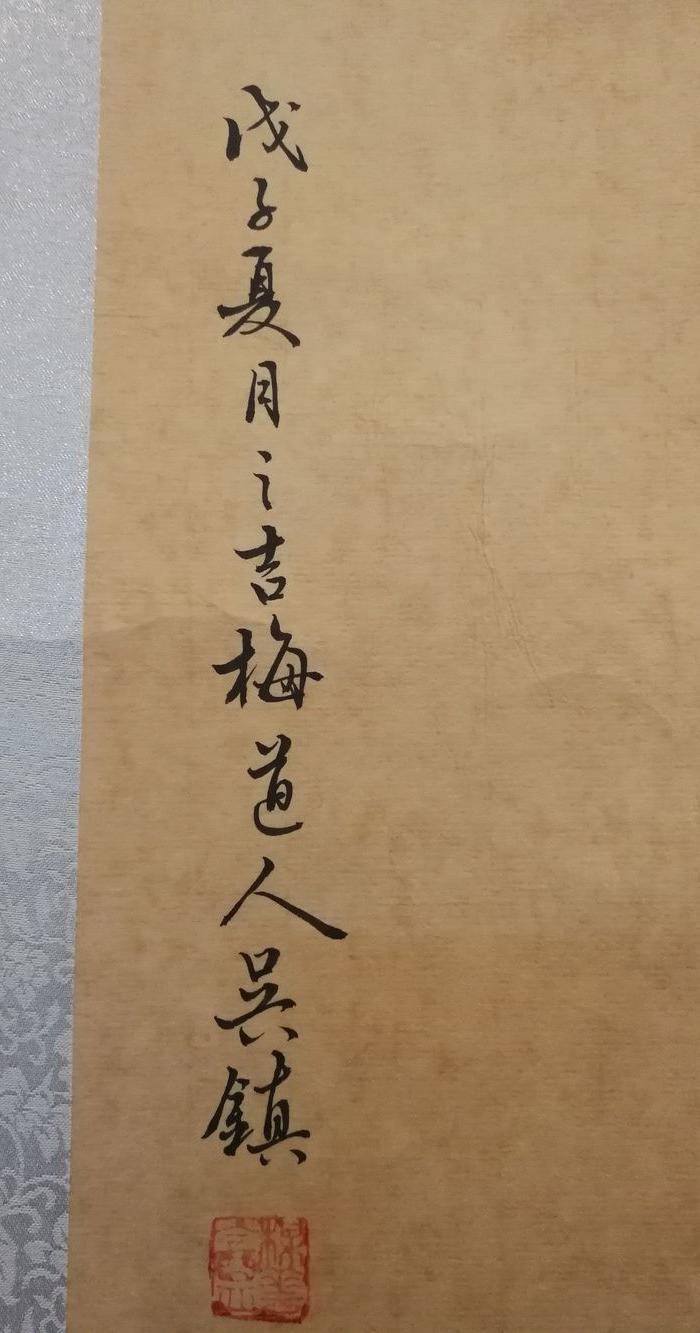 戊子夏月之吉梅道人吳鎮